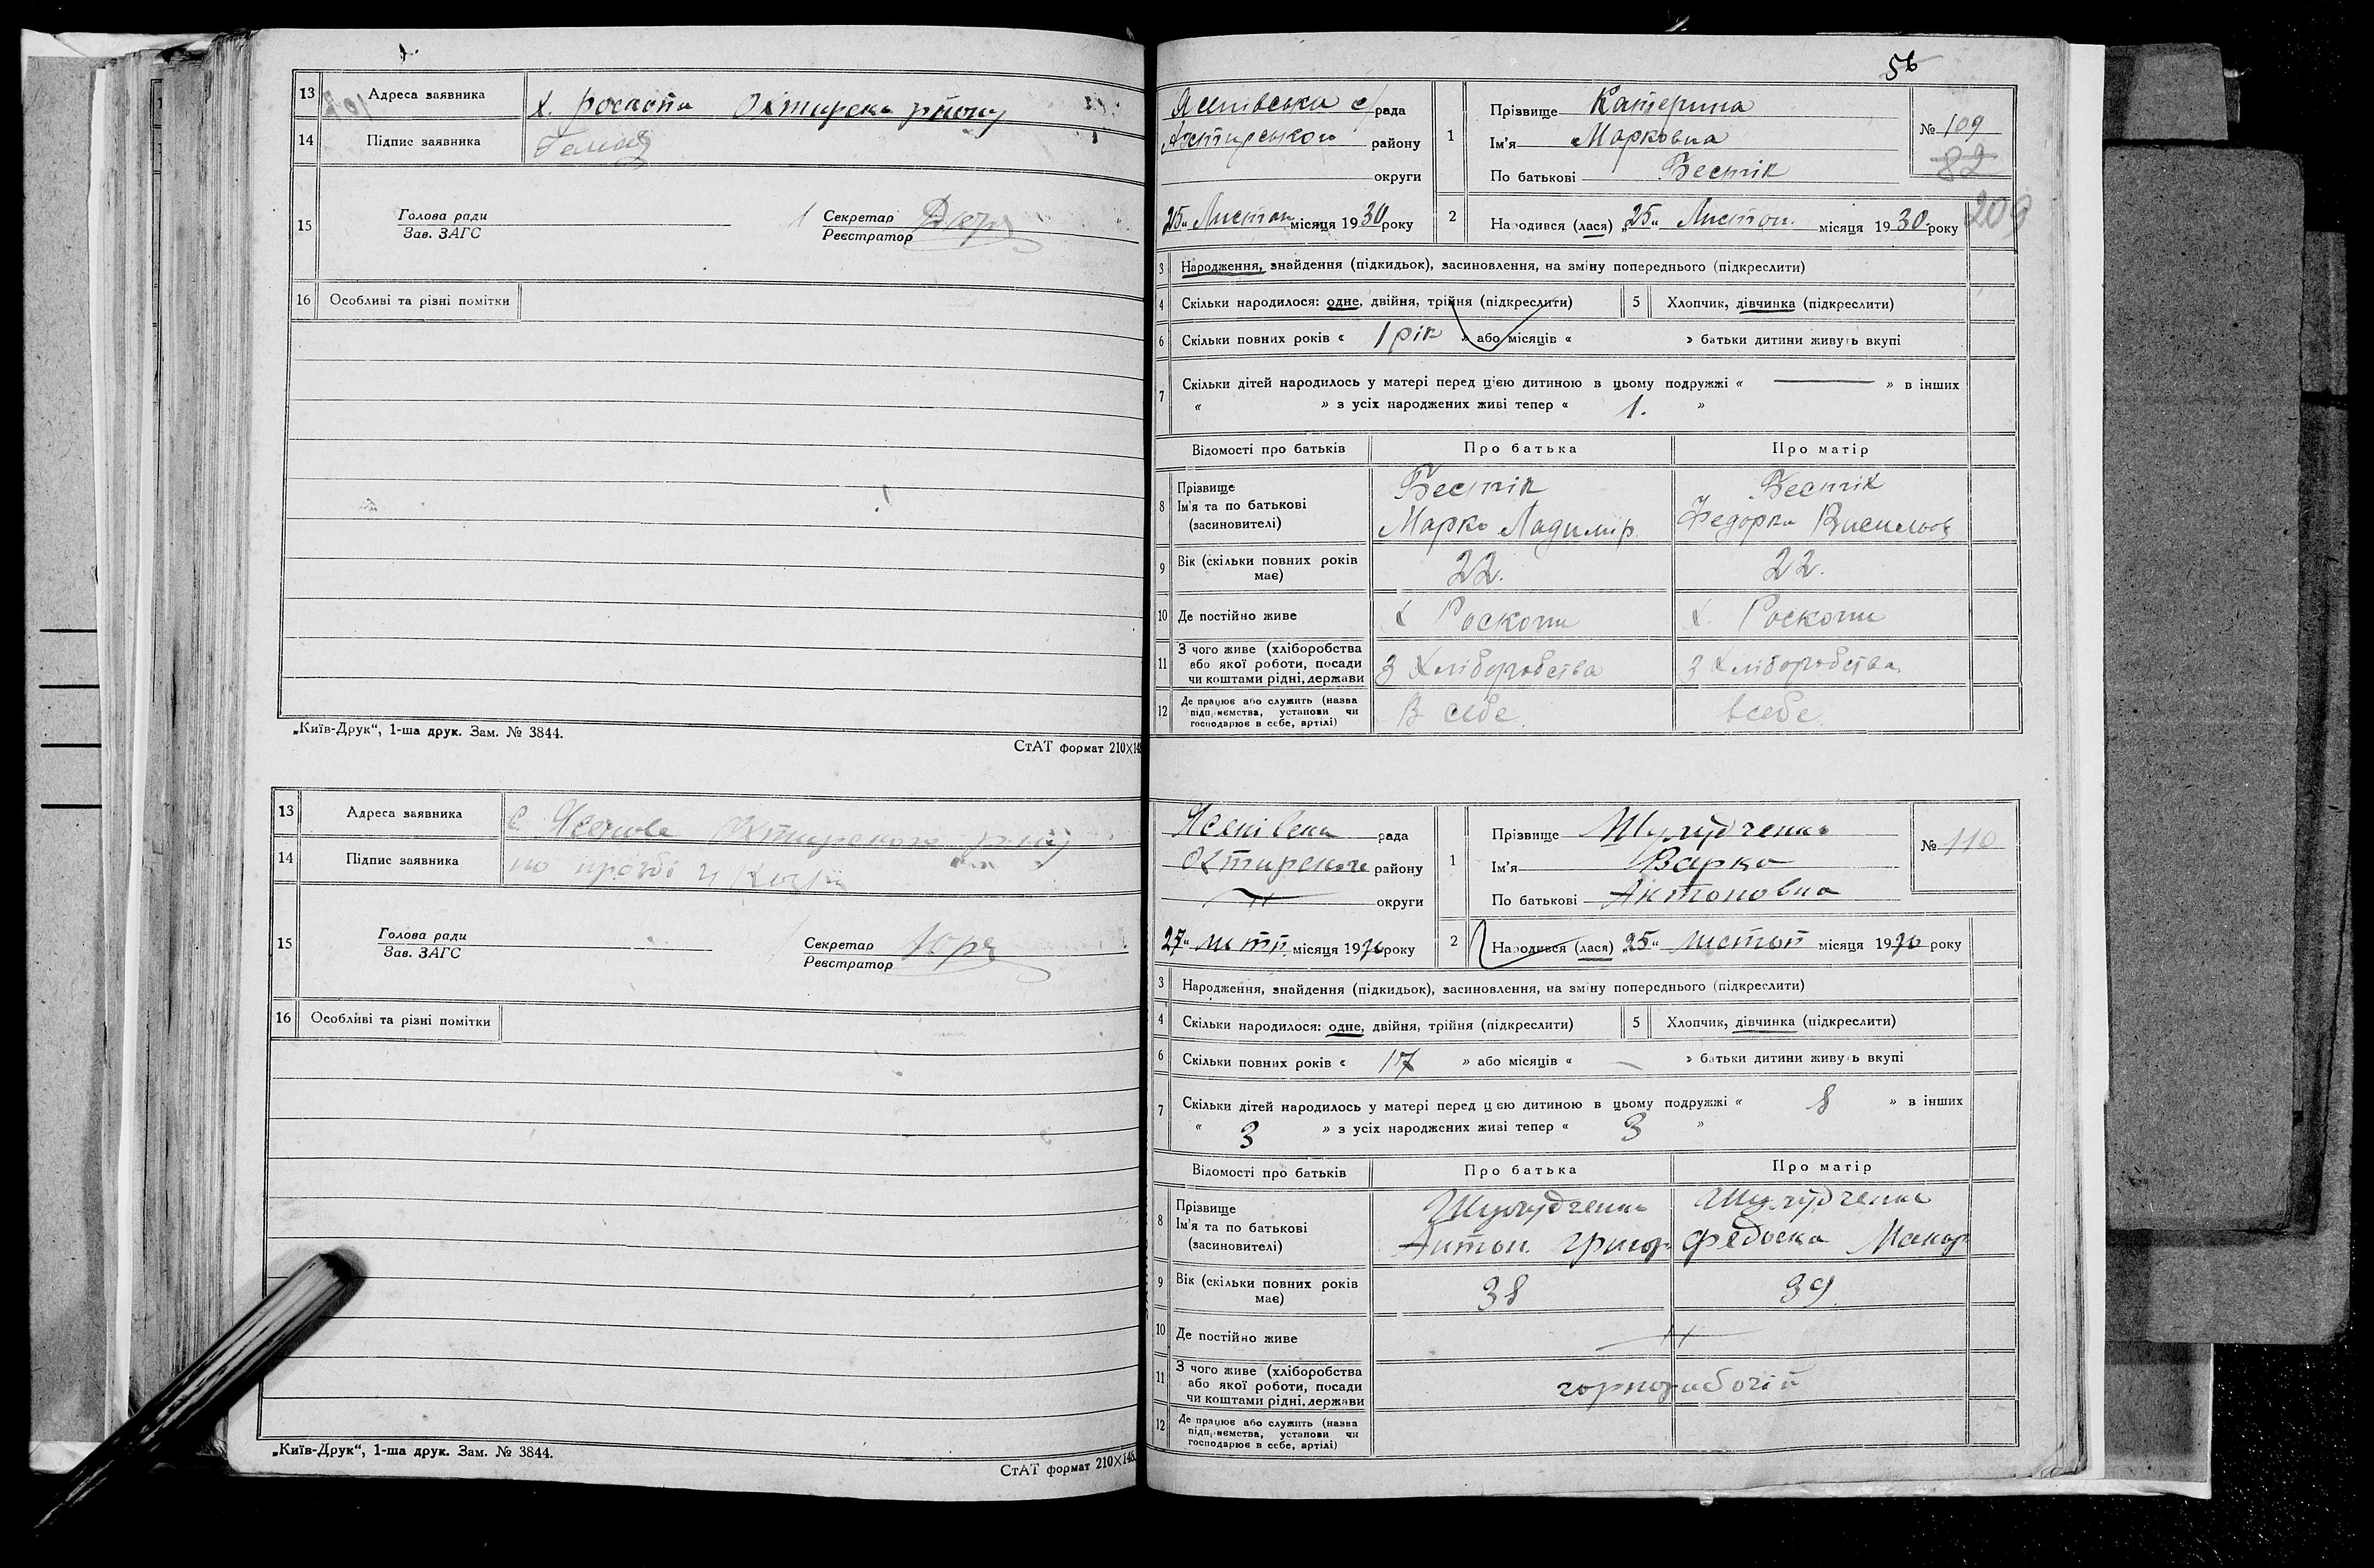 13 Адреса заявника х. Роскоти Охтирсько району
14 Підпис заявника
15 Голова ради
Зав. ЗАГС
Секретар
Реєстратор
16 Особливі та різні помітки
„Київ-Друк“, 1-ша друк. Зам. № 3844.
СтАТ формат 210×148
13 Адреса заявника с Ясенове Охтирского
14 Підпис заявника по прозбі
15 Голова ради
Зав. ЗАГС
Секретар
Реєстратор
16 Особливі та різні помітки
„Київ-Друк“, 1-ша друк. Зам. № 3844.
СтАТ формат 210×148
56
Ясенівська с/рада
Охтирського району
округи
1 Прізвище Катерина
Ім'я Марковна
По батькові Беспік
№ 109
82
209
25 „ Листоп місяця 1930 року
2 Народився (лася) „25“ Листоп. місяця 1930 року
3 Народження, знайдення (підкидьок), засиновлення, на зміну попереднього (підкреслити)
4 Скільки народилося: одне, двійня, трійня (підкреслити) 5 Хлопчик, дівчинка (підкреслити)
6 Скільки повних років « 1 рік » або місяців « » батьки дитини живуть вкупі
7 Скільки дітей народилось у матері перед цією дитиною в цьому подружжі « — » в інших
« » з усіх народжених живі тепер « 1. »
Відомості про батьків Про батька Про матір
8 Прізвище
Ім'я та по батькові
(засиновителі)
Беспік
Марко Ладимір.
Беспік
Федорка
9 Вік (скільки повних років має) 22. 22.
10 Де постійно живе х Роскоти х. Роскоти
11 З чого живе (хліборобства або якої роботи, посади чи коштами рідні, держави З хліборобства З хліборобства
12 Де працює або служить (назва підприємства, установи чи господарює в себе, артілі) В себе. в себе.
Ясенівська рада
Охтирского району
округи
1 Прізвище
Ім'я Варка
По батькові Антоновна
№ 110
27 „ місяця 1930 року
2 Народився (лася) „25“ листоп місяця 1930 року
3 Народження, знайдення (підкидьок), засиновлення, на зміну попереднього (підкреслити)
4 Скільки народилося: одне, двійня, трійня (підкреслити) 5 Хлопчик, дівчинка (підкреслити)
6 Скільки повних років « 17 » або місяців « — » батьки дитини живуть вкупі
7 Скільки дітей народилось у матері перед цією дитиною в цьому подружжі « 8 » в інших
« 3 » з усіх народжених живі тепер « 3 »
Відомості про батьків Про батька Про матір
8 Прізвище
Ім'я та по батькові
(засиновителі)
Антон. Григор
Федоска Макар
9 Вік (скільки повних років має) 38 39
10 Де постійно живе
11 З чого живе (хліборобства або якої роботи, посади чи коштами рідні, держави чорноробочій
12 Де працює або служить (назва підприємства, установи чи господарює в себе, артілі)